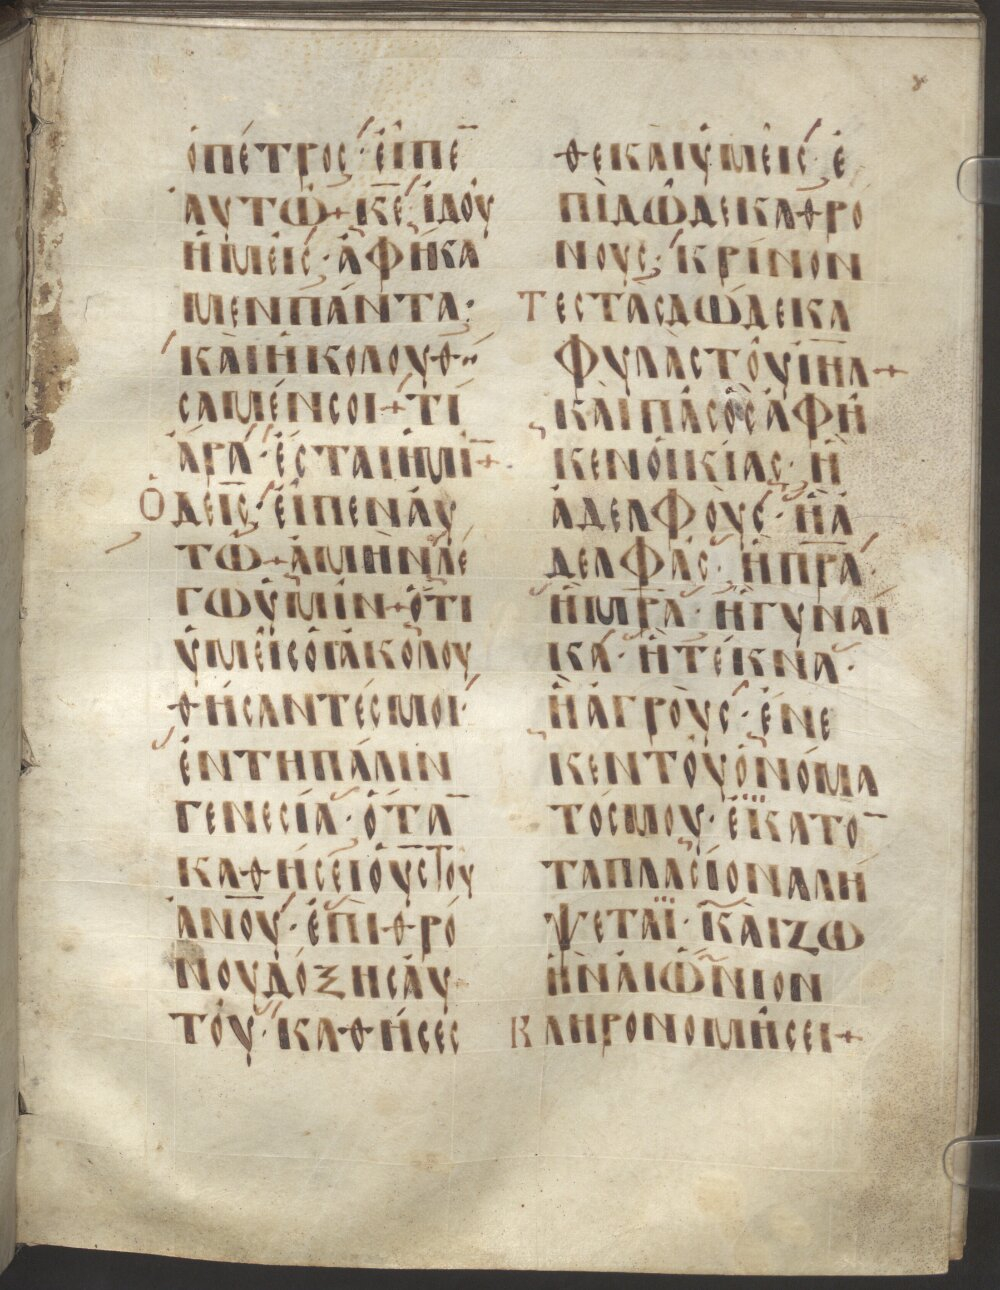 ὁ πέτρος· εἶπε̅
αὐτῶ + κ̅ε̅ ἰδοὺ
ἡμεῖς· ἀφήκα
μεν πάντα·
καὶ ἠκολουθή
σαμέν σοι + τί
ἄρα· ἔσται ἡμῖ̅ +
Ὁ δὲ ι̅ς̅· εἶπεν αυ
τῶ + ἀμὴν λέ
γω ὑμῖν + ὅτι
ὑμεῖς οἱ ἀκολου
θήσαντές μοι·
ἐν τῆ παλιν
γενεσία· ὅτα̅
καθήσει ὁ υ̅ς̅ τοῦ
α̅ν̅ο̅υ̅· ἐπὶ θρό
νου δόξης αὐ
τοῦ· καθήσεσ
θε καὶ ὑμεῖς· ἐ
πὶ δώδεκα θρό
νους· κρίνον
τες τὰς δώδεκα
φυλὰς τοῦ ι̅η̅λ̅ +
καὶ πᾶς ὃς ἀφῆ
κεν οἰκίας· ἢ
ἀδελφοὺς· ἢ ἀ
δελφὰς· ἢ π̅ρ̅α̅·
ἢ μ̅ρ̅α̅· ἢ γυναῖ
κα· ἢ τέκνα·
ἢ ἀγροὺς· ἕνε
κεν τοῦ ὀνόμα
τός μου· ἑκατο̅
ταπλασίονα λή
ψεταϊ· καὶ ζω
ὴν αἰώνιον
κληρονομήσει +